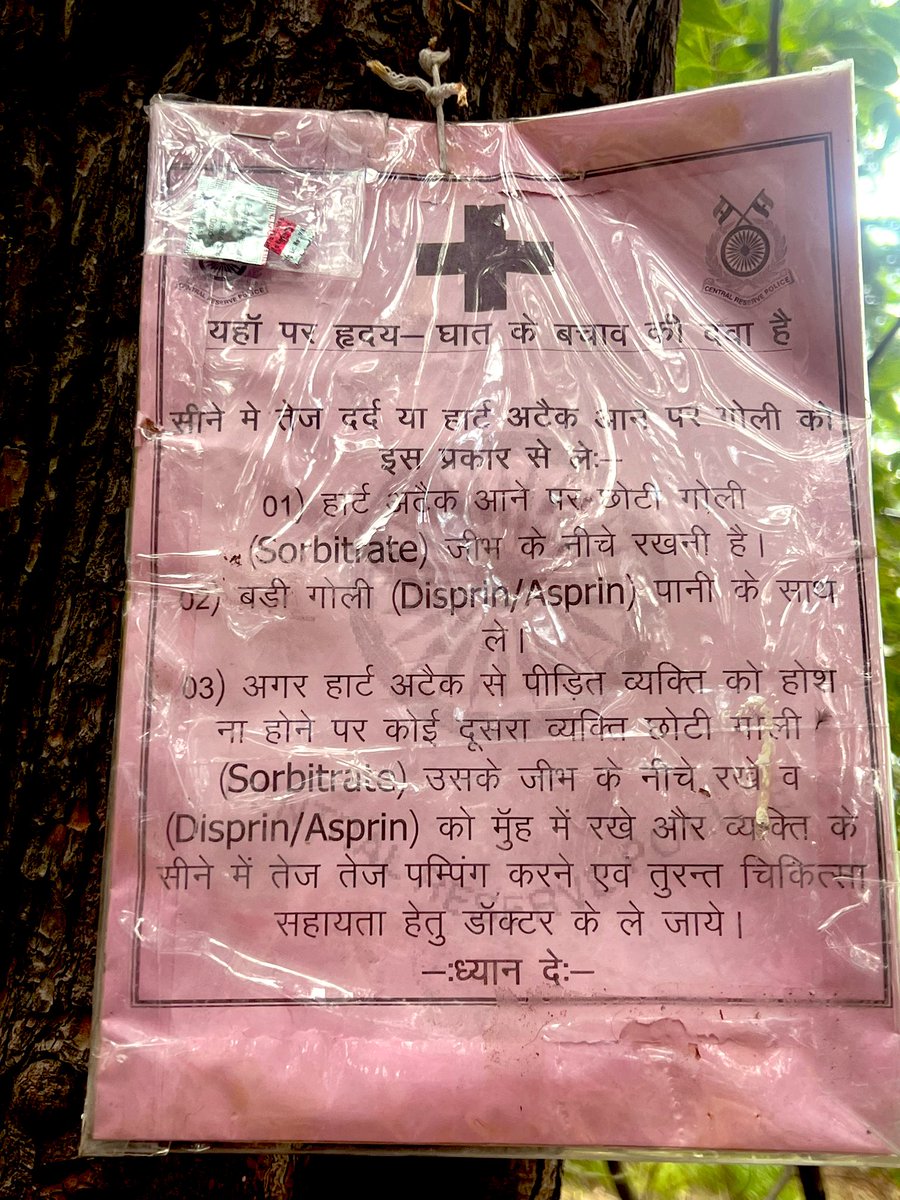 CENTRAL RESERVE POLICE
CENTRAL RESERVE POLICE
यहाॅ पर हृदय– घात के बचाव की दवा है
सीने मे तेज दर्द या हार्ट अटैक आने पर गोली को
इस प्रकार से ले:–
01) हार्ट अटैक आने पर छोटी गोली
(Sorbitrate) जीभ के नीचे रखनी है।
02) बडी गोली (Disprin/Asprin) पानी के साथ
ले।
03) अगर हार्ट अटैक से पीड़ित व्यक्ति को होश
ना होने पर कोई दूसरा व्यक्ति छोटी गोली
(Sorbitrate) उसके जीभ के नीचे रखे व
(Disprin/Asprin) को मुॅह में रखे और व्यक्ति के
सीने में तेज तेज पम्पिंग करने एवं तुरन्त चिकित्सा
सहायता हेतु डॉक्टर के ले जाये।
–:ध्यान दे:–